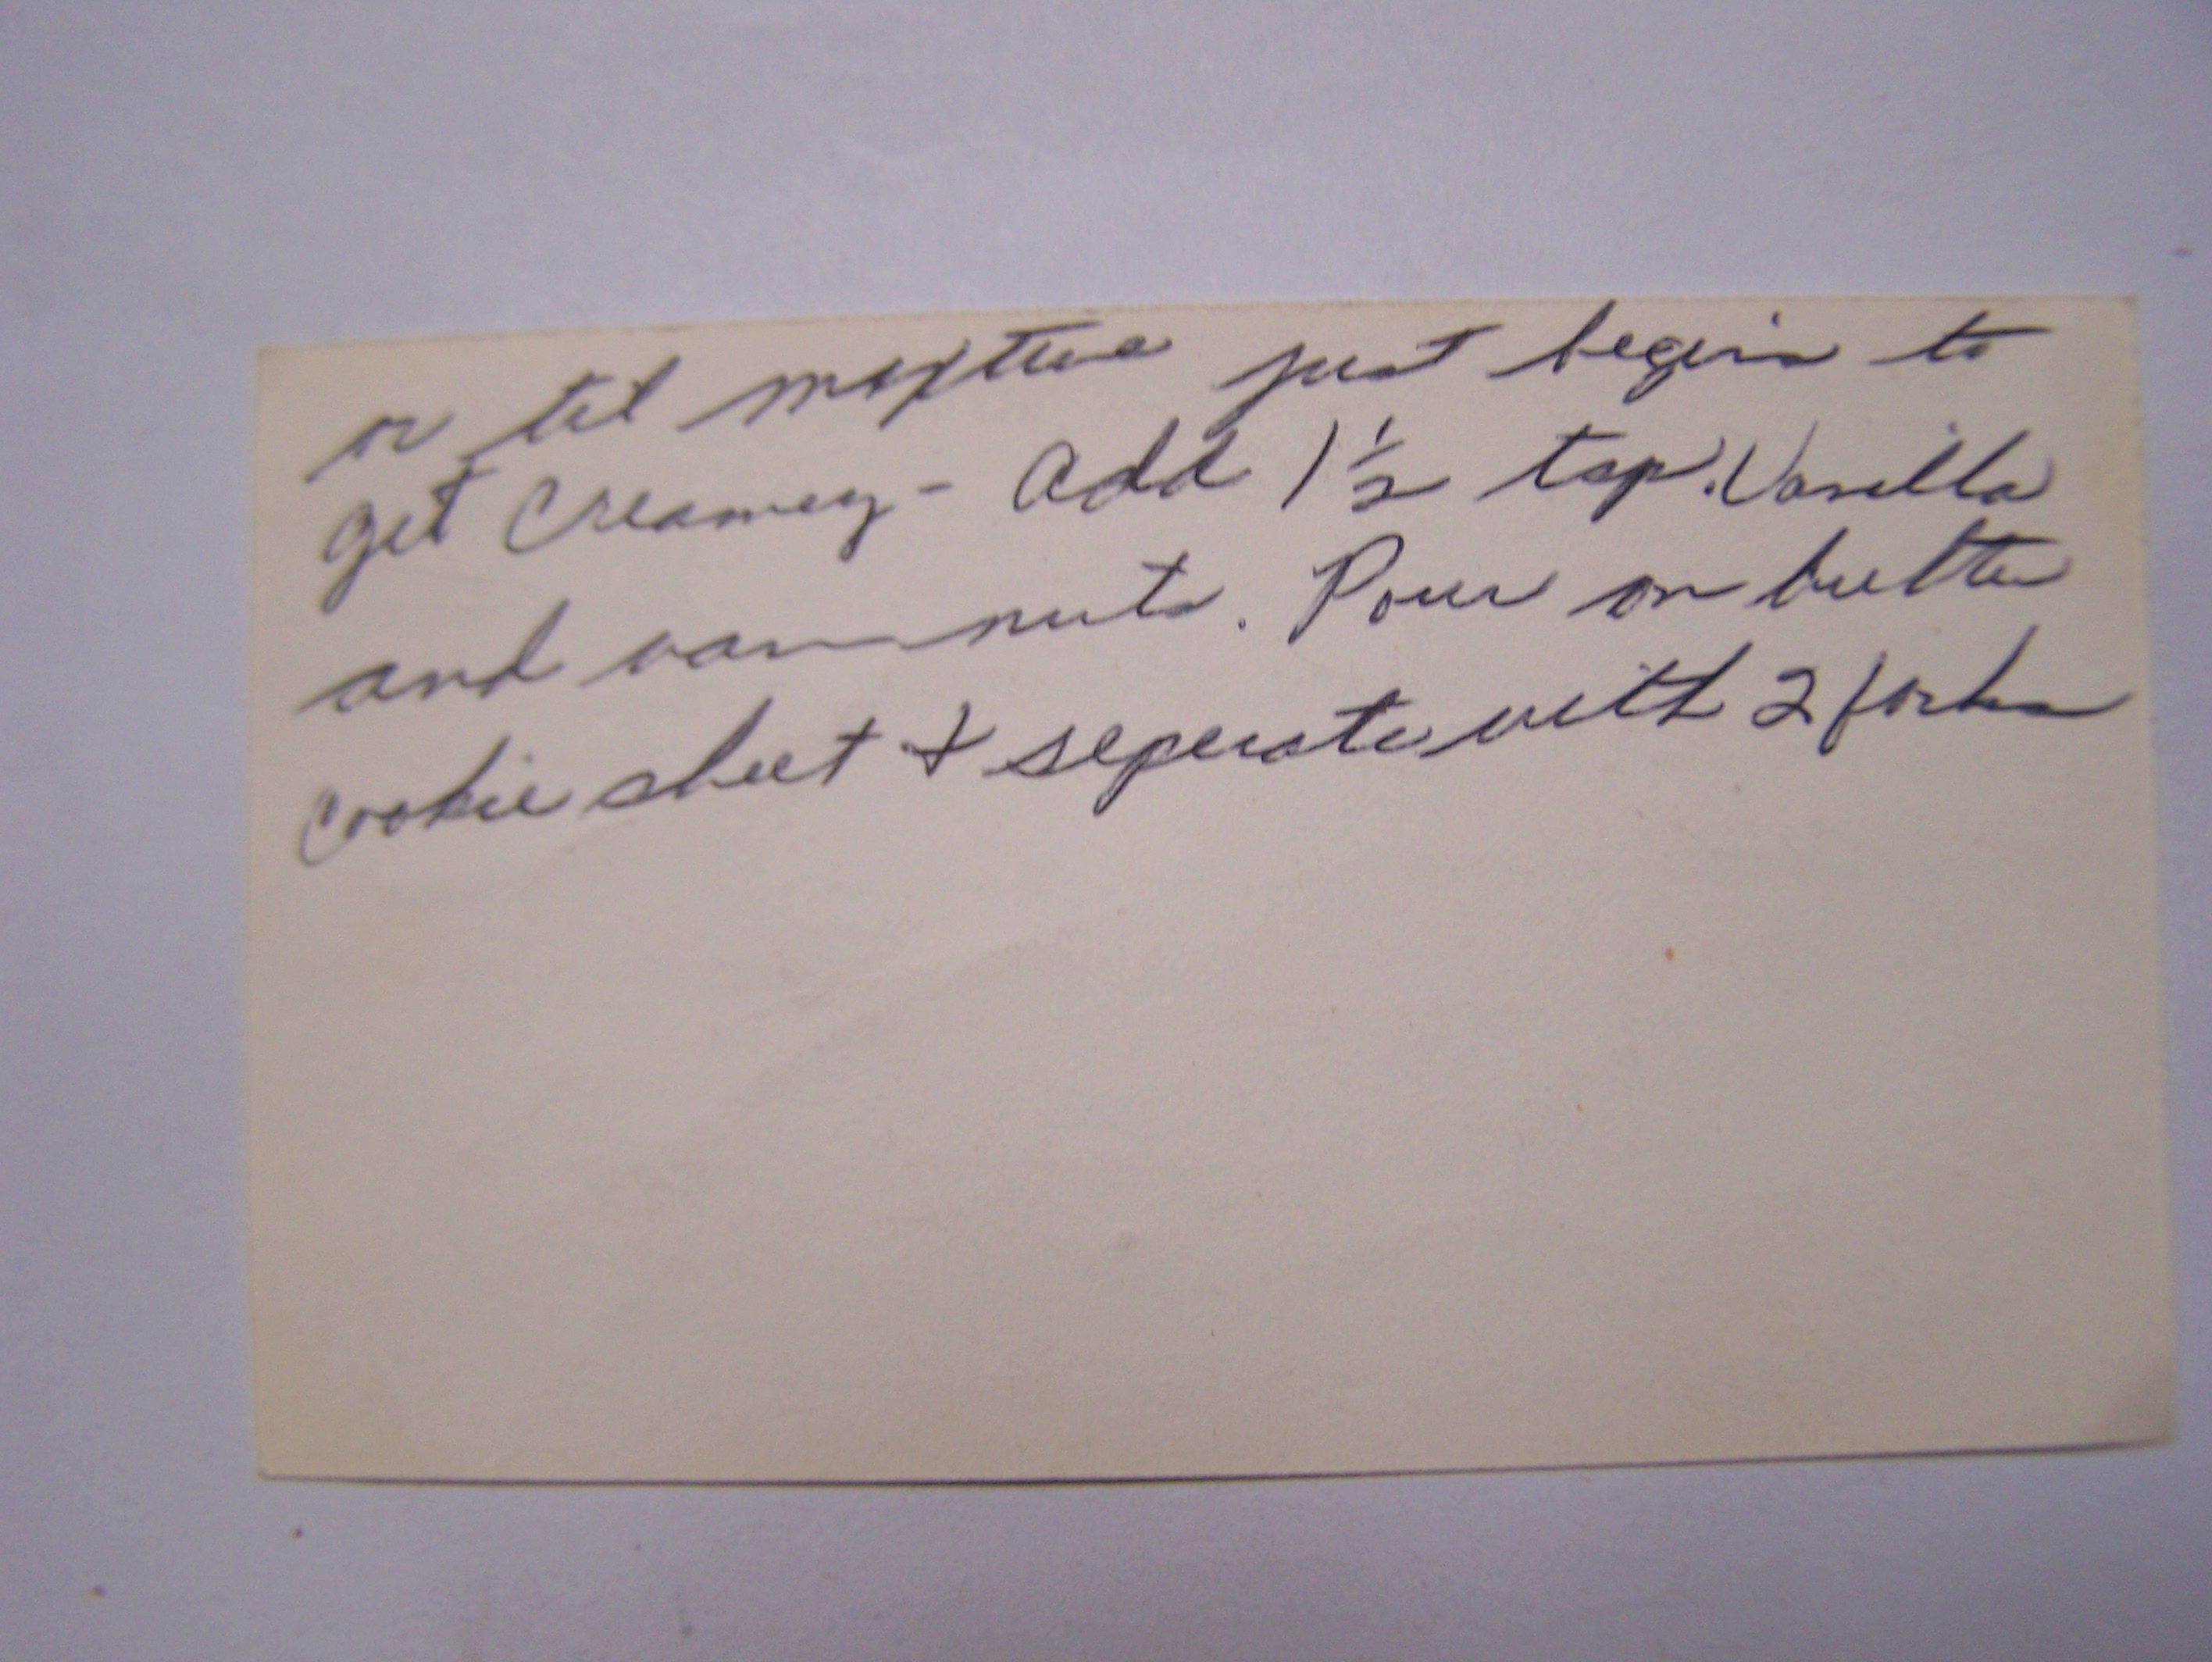 or til mixture just begins to
get creamey - add 1 1/2 tsp. Vanilla
and warm nuts. Pour on butter
cookie sheet + seperate with 2 forks